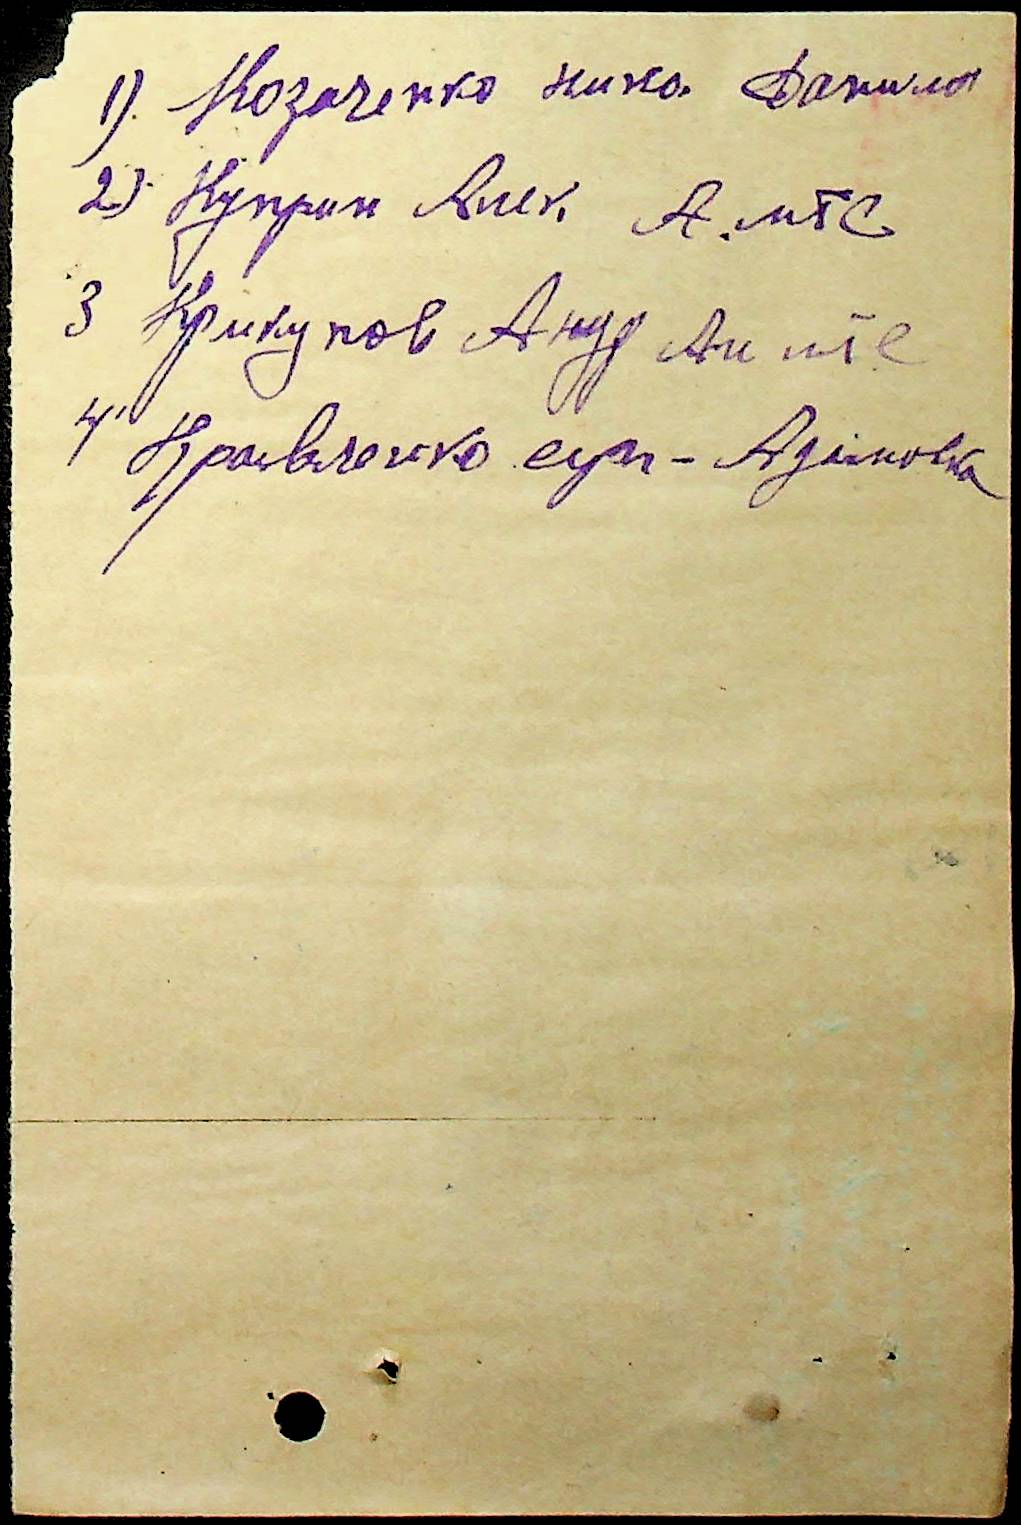 1). Козаченко Нико. Данило
2) Куприн Алек. А. МТС
3 Крикунов Андр Ан МТС
4' Кравченко – Адамовка